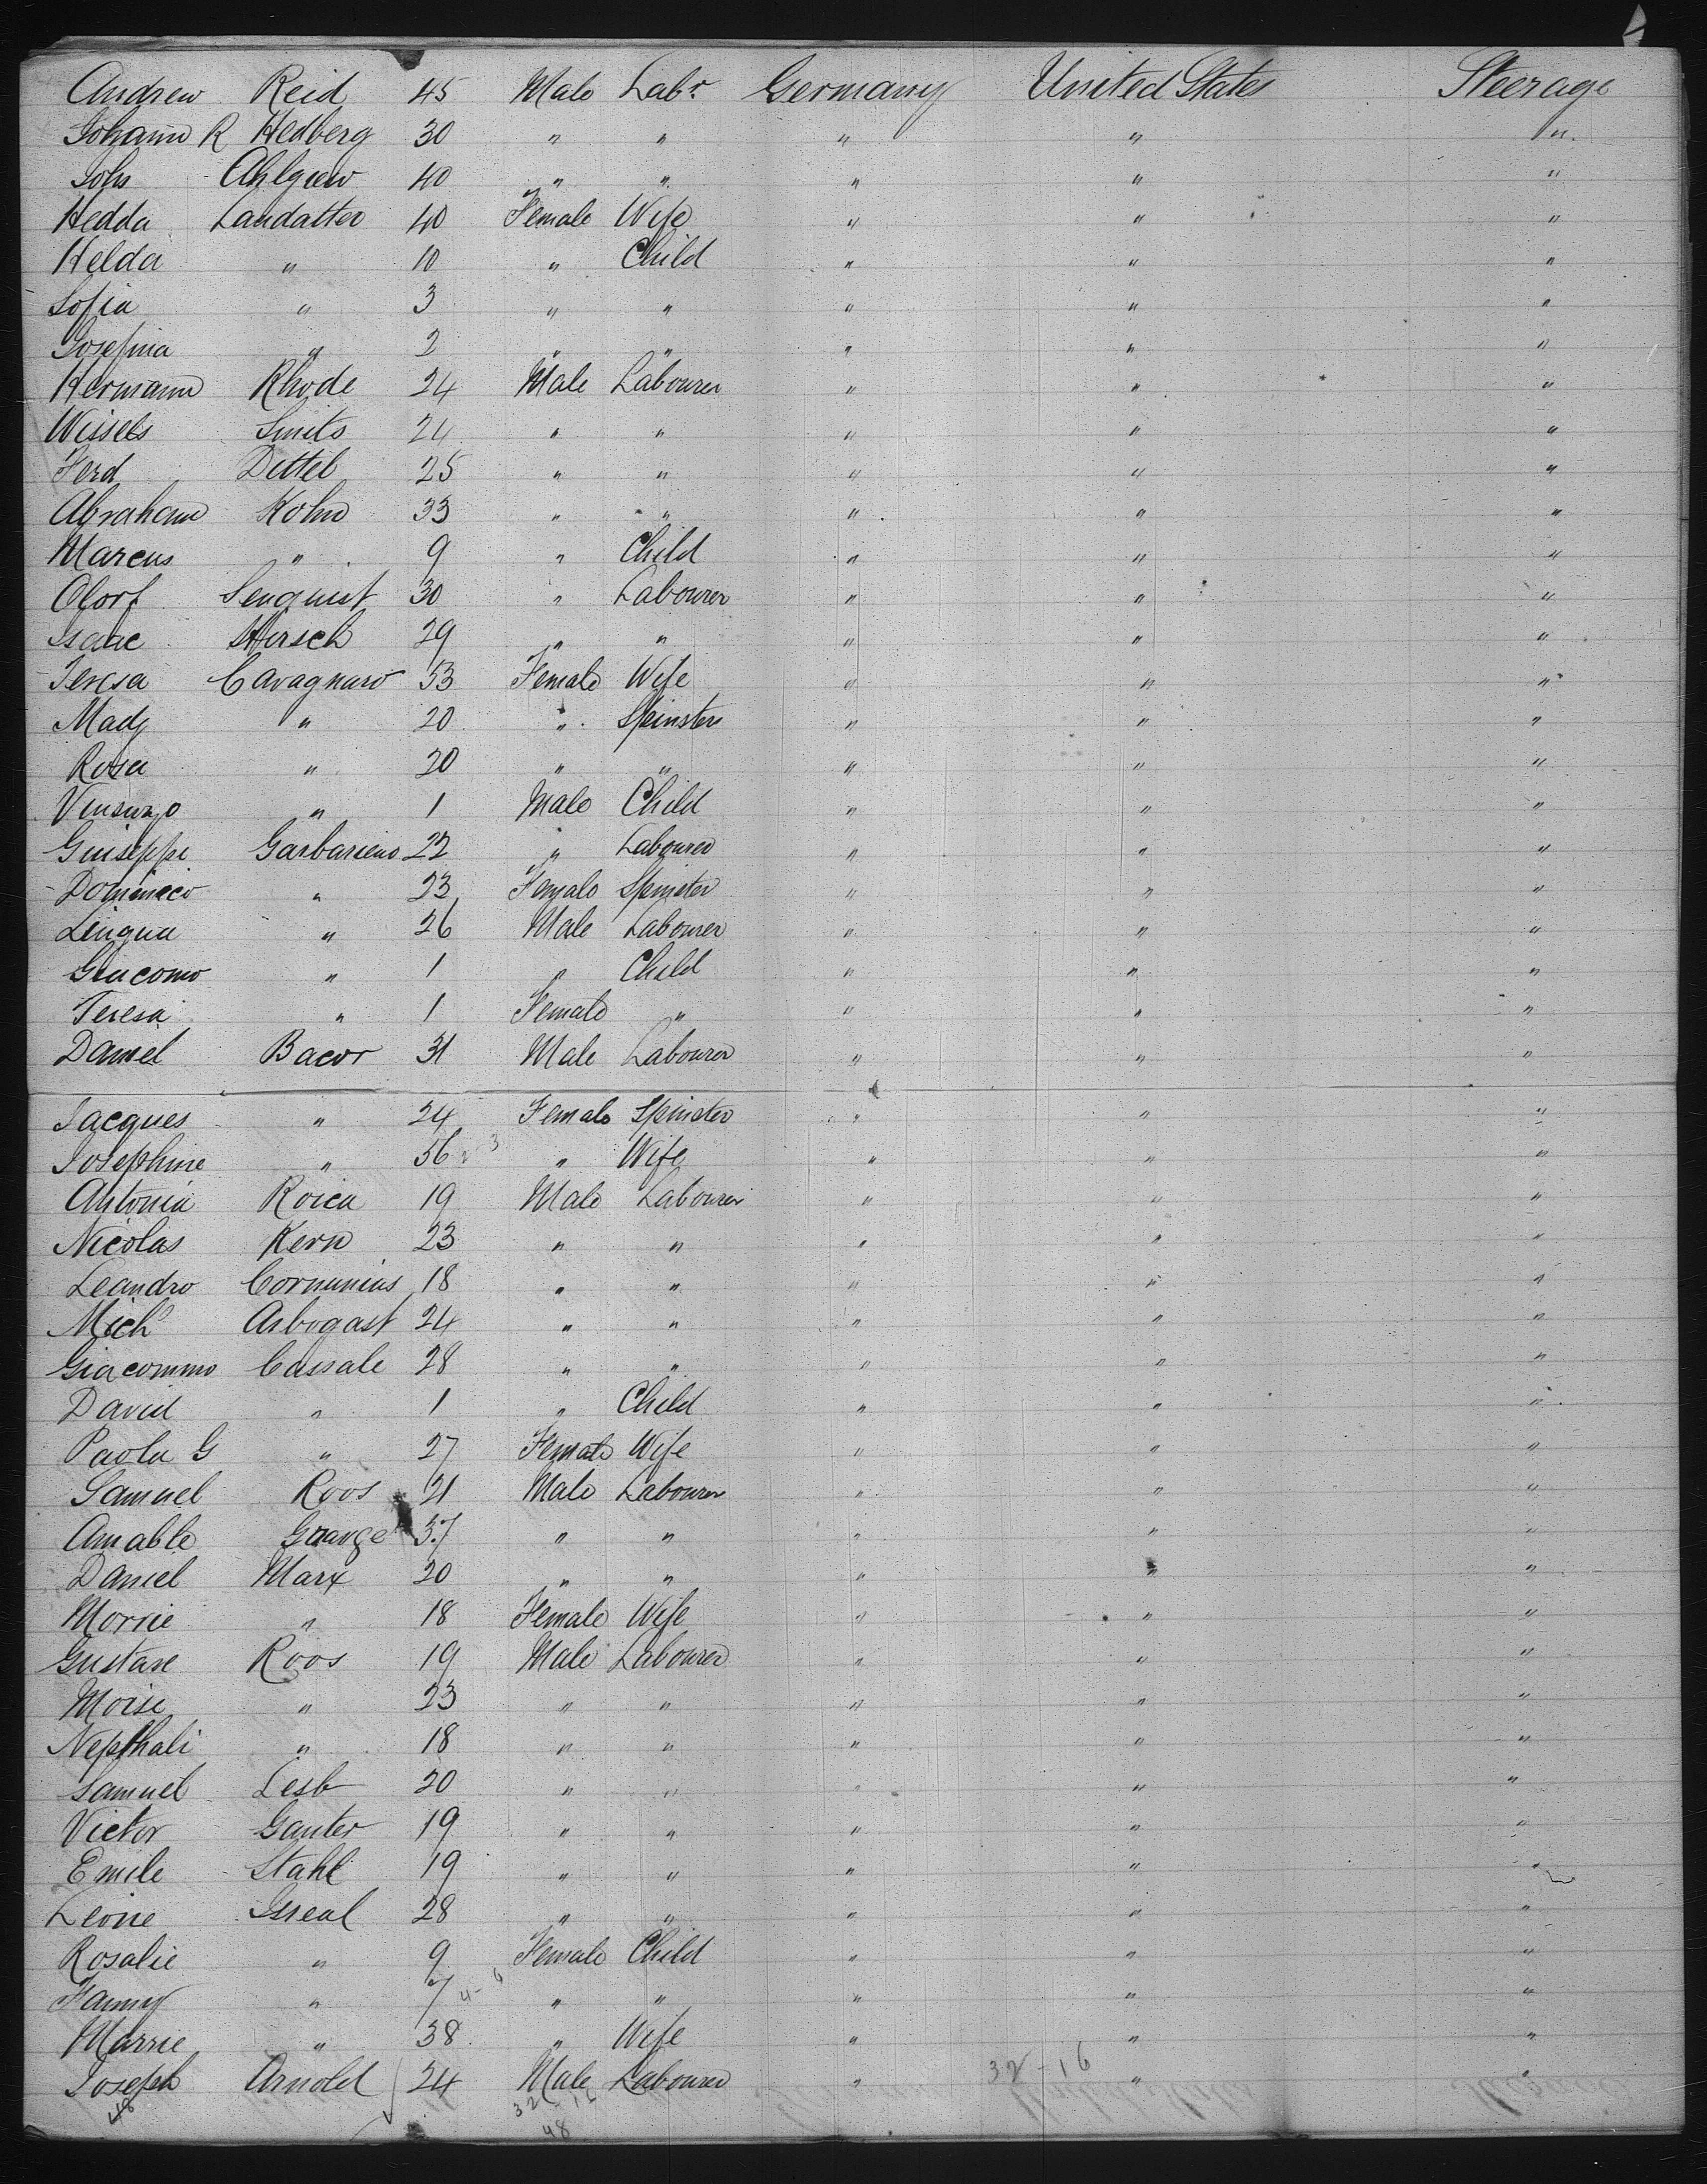 Andrew Reid 45 Male Labr. Germany United States Steerage
Johann R Hedberg 30 " " " " "
Johs Ahlgren 40 " " " " "
Hedda Landatter 40 Female Wife " " "
Helda " 10 " Child " " "
Sofia " 3 " " " " "
Josefina " 2 " " " " "
Hermann Rhode 24 Male Labourer " " "
Wissels Smits 24 " " " " "
Ferd Dittel 25 " " " " "
Abraham Kohn 33 " " " " "
Marcus " 9 " Child " " "
Olorf Senquist 30 " Labourer " " "
Isaac Hirsch 29 " " " " "
Teresa Cavagnaro 53 Female Wife " " "
Mady " 20 " Spinster " " "
Rosa " 20 " " " " "
Vinsunzo " 1 Male Child " " "
Guiseppi Garbarieno 22 " Labourer " " "
Dominico " 23 Female Spinster " " "
Lingua " 26 Male Labourer " " "
Giacomo " 1 " Child " " "
Teresa " 1 Female " " " "
Daniel Bacor 31 Male Labourer " " "
Jacques " 24 Female Spinster " " "
Josephine " 56 " Wife " " "
Antonia Roica 19 Male Labourer " " "
Nicolas Kern 23 " " " " "
Leandro Cornunius 18 " " " " "
Michl Arbogast 24 " " " " "
Giacommo Cassale 28 " " " " "
David " 1 " Child " " "
Paola G " 27 Female Wife " " "
Samuel Roos 21 Male Labourer " " "
Amable Grange 37 " " " " "
Daniel Marx 20 " " " " "
Morrie " 18 Female Wife " " "
Gustave Roos 19 Male Labourer " " "
Moise " 23 " " " " "
Nepthali " 18 " " " " "
Samuel Lesb 20 " " " " "
Victor Ganter 19 " " " " "
Emile Stahl 19 " " " " "
Leonie Isreal 28 " " " " "
Rosalie " 9 Female Child " " "
Fanny " 7 " " " " "
Marrie " 38 " Wife " " "
Joseph Arnold 24 Male Labourer " " "
32-16
48 32 16
48